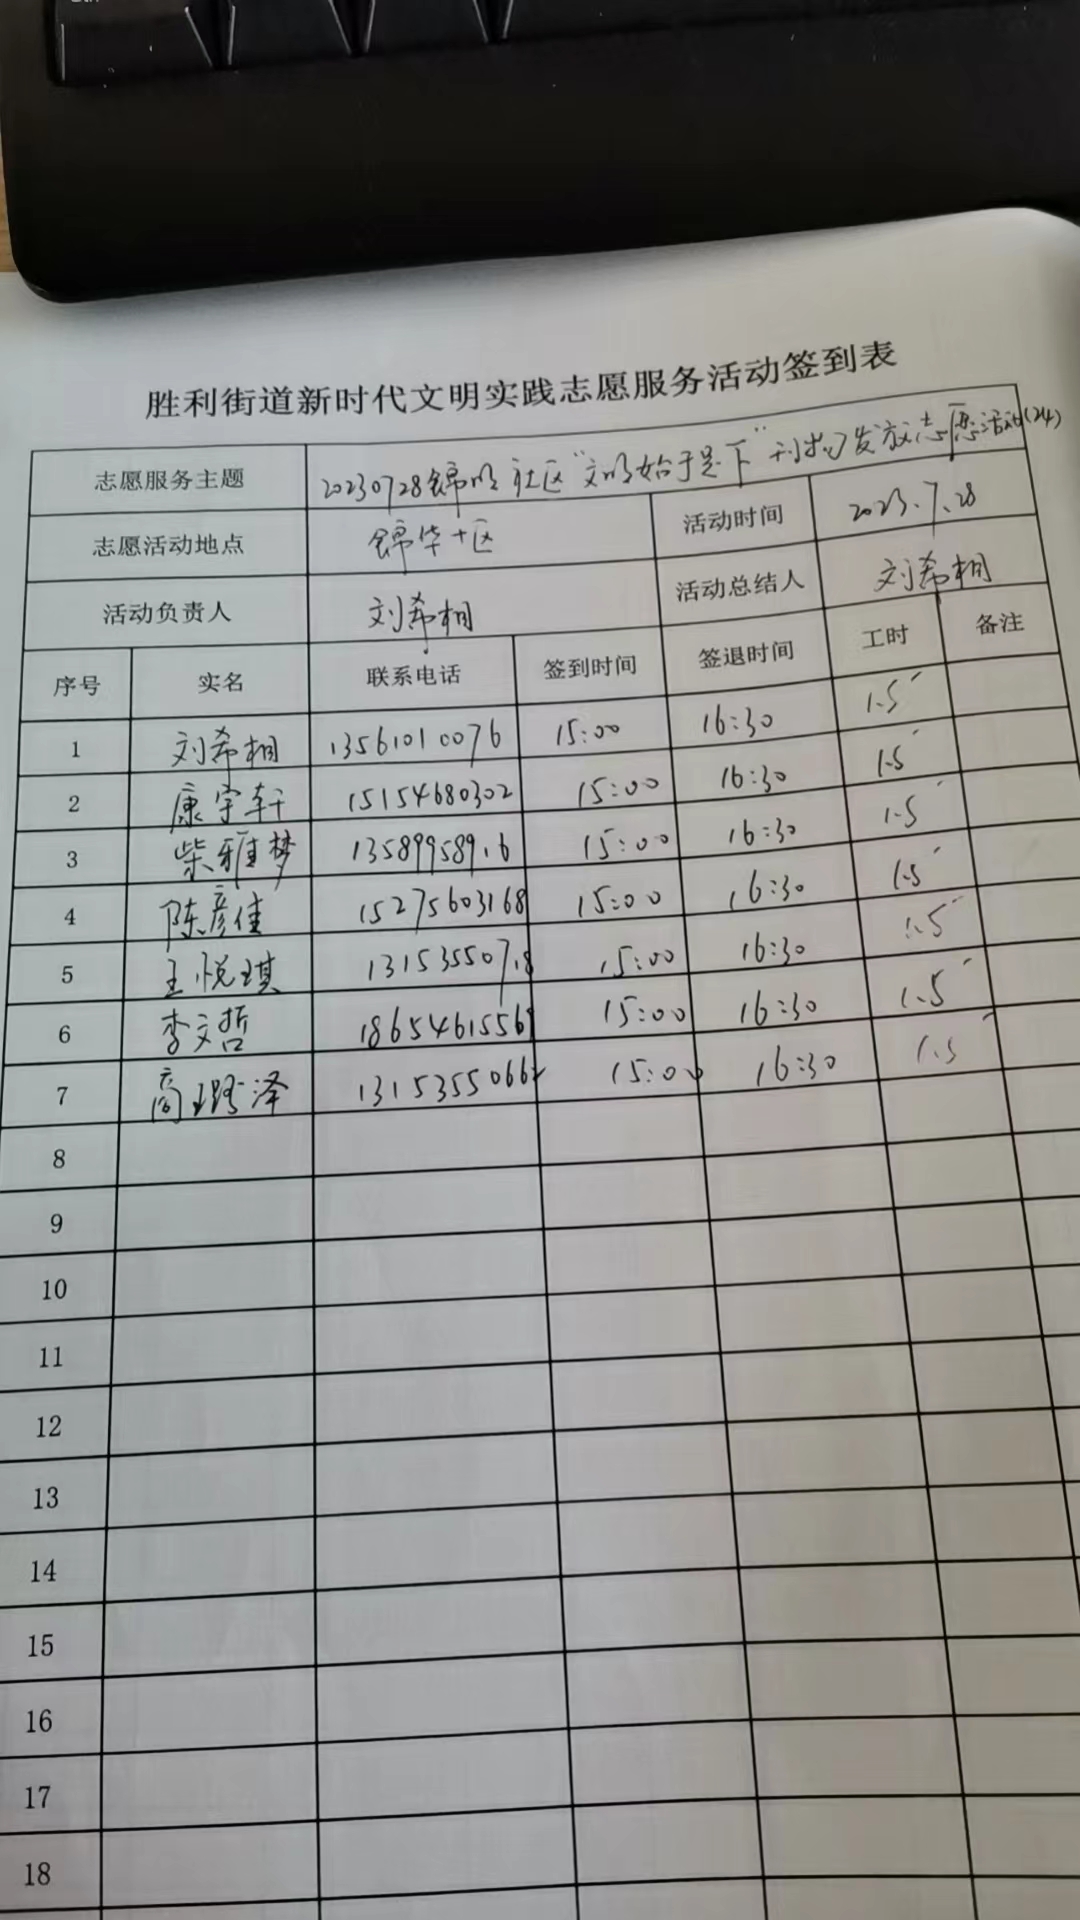 胜利街道新时代文明实践志愿服务活动签到表
志愿服务主题 20230728锦明社区"文明始于足下"刊物发放志愿活动(24)
志愿活动地点 锦华十区 活动时间 2023.7.28
活动负责人 刘希相 活动总结人 刘希相
序号 实名 联系电话 签到时间 签退时间 工时 备注
1 刘希相 13561010076 15:00 16:30 1.5
2 康宇轩 15154680302 15:00 16:30 1.5
3 柴雅梦 13589958916 15:00 16:30 1.5
4 陈彦佳 15275603168 15:00 16:30 1.5
5 王悦琪 13153550718 15:00 16:30 1.5
6 李文哲 18654615561 15:00 16:30 1.5
7 商璐泽 13153550662 15:00 16:30 1.5
8
9
10
11
12
13
14
15
16
17
18